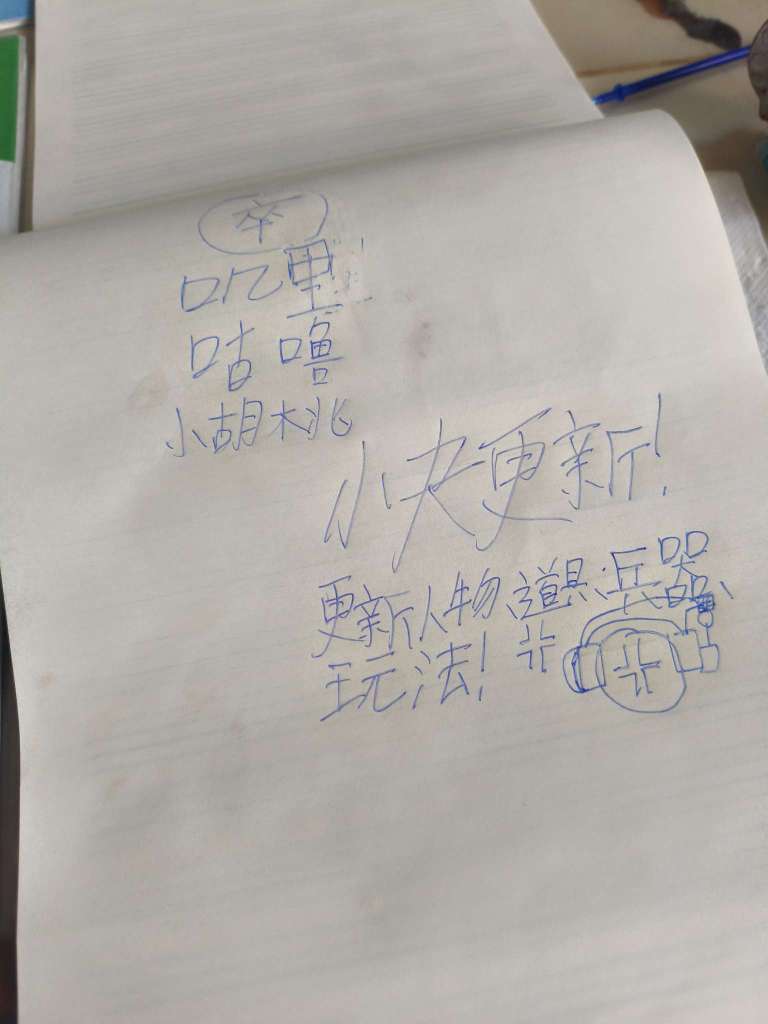 卒
叽里
咕噜
小胡桃
快更新!
更新人物、道具、兵器、
玩法!